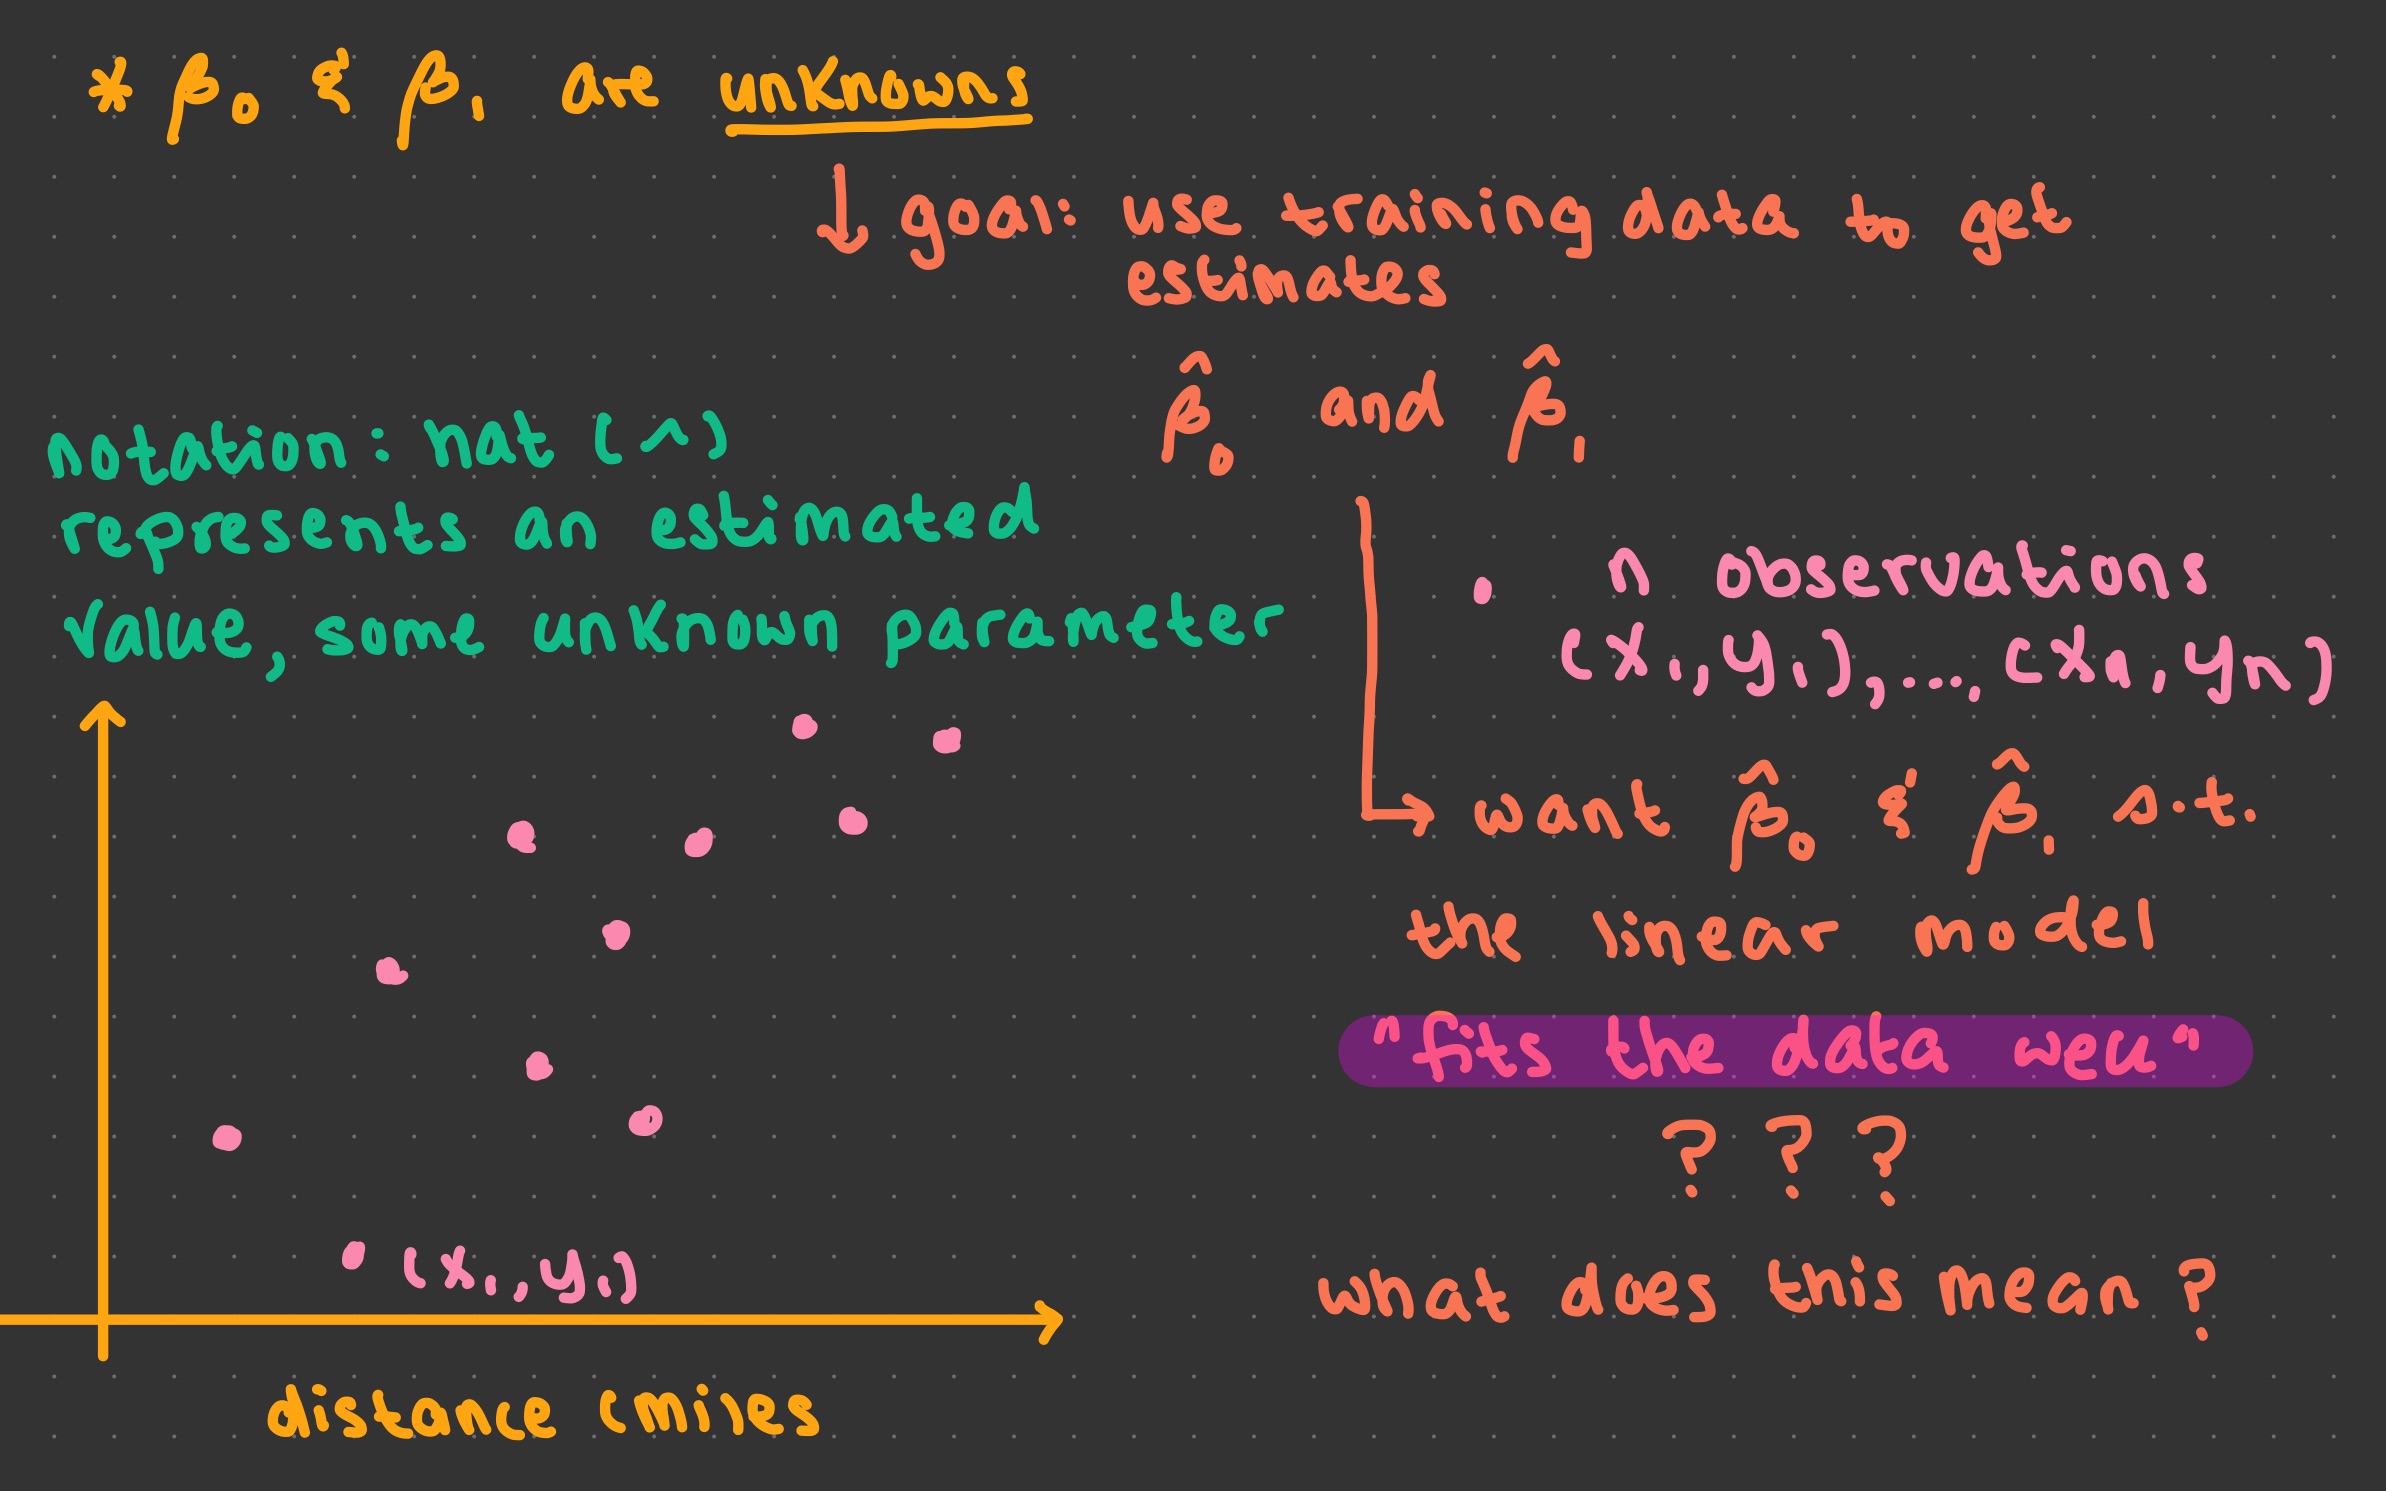 * β₀ & β₁ are unknowns
goal: use training data to get
estimates
β̂₀ and β̂₁
notation: hat (^)
represents an estimated
value, some unknown parameter
n observations
(x₁, y₁), ...., (x₁, yₙ)
want β̂₀ & β̂₁ s.t.
the linear model
"fits the data well"
???
what does this mean?
(x₁, y₁)
distance (miles